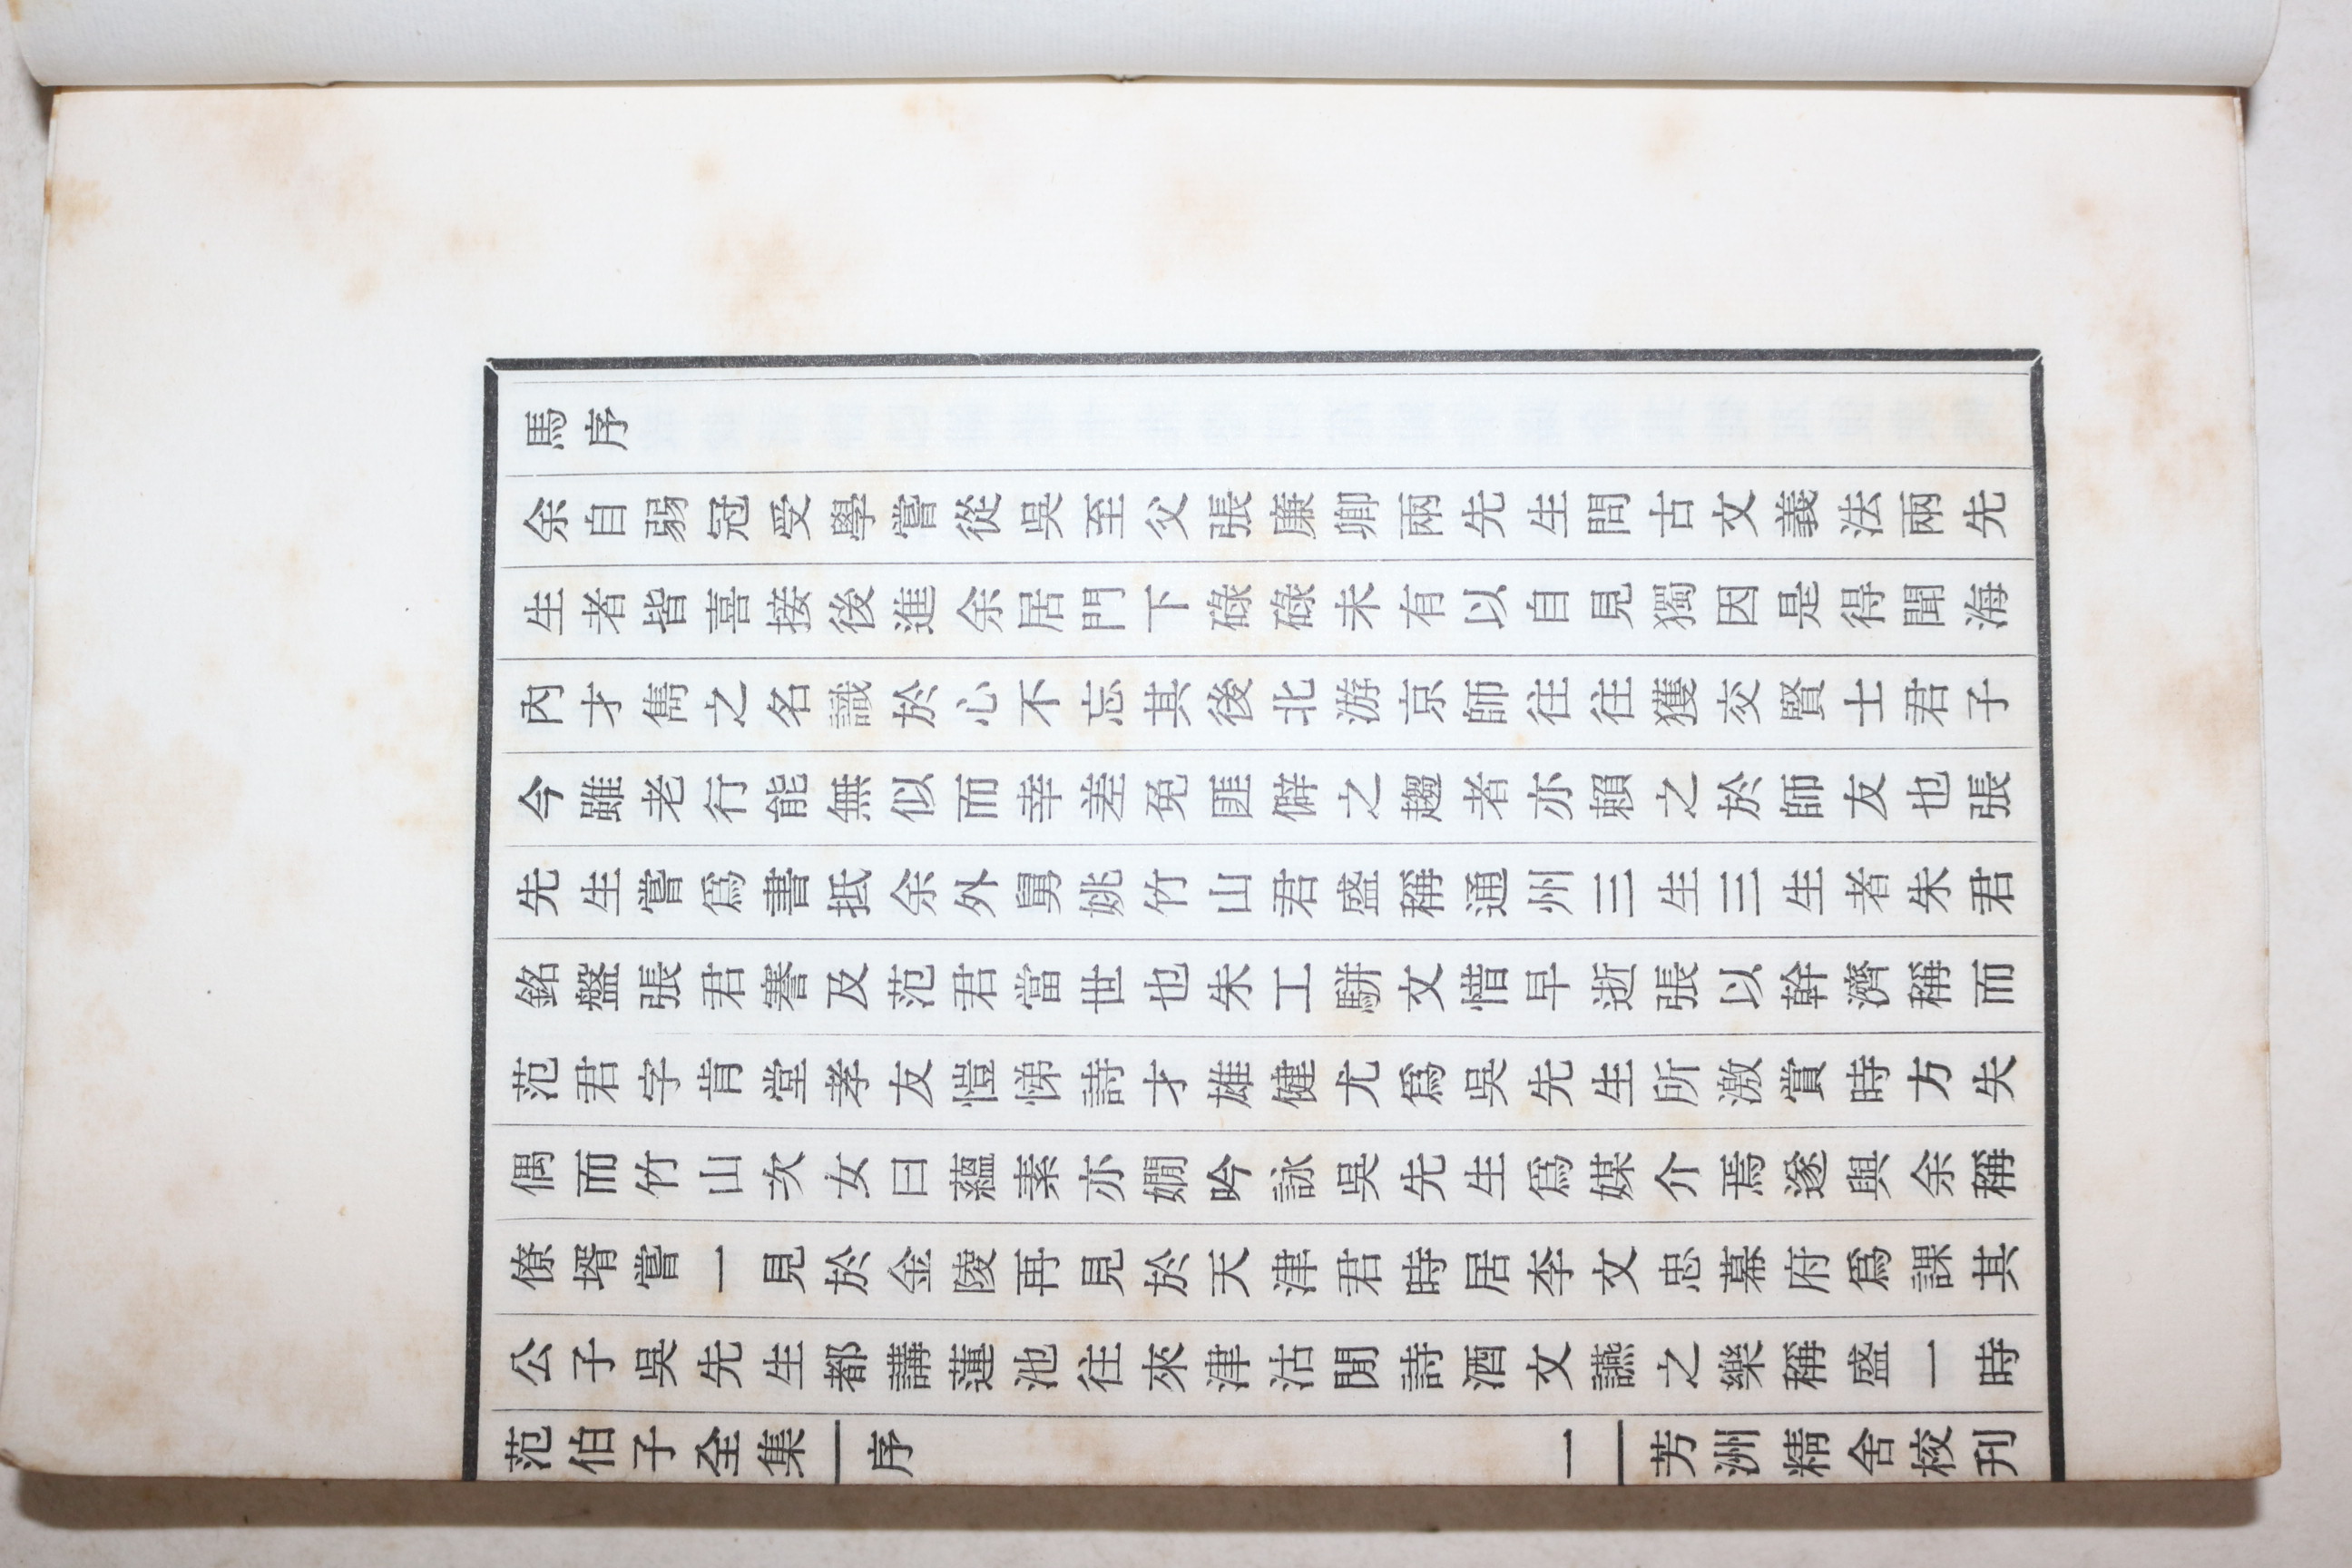 馬序
余自弱冠受學嘗從吳至父張廉卿兩先生問古文義法兩先
生者皆喜接後進余居門下碌碌未有以自見獨因是得聞海
內才雋之名識於心不忘其後北游京師往往獲交賢士君子
今雖老行能無似而幸差免匪僻之趨者亦賴之於師友也張
先生嘗爲書抵余外舅姚竹山君盛稱通州三生三生者朱君
銘盤張君謇及范君當世也朱工駢文惜早逝張以幹濟稱而
范君字肯堂孝友愷悌詩才雄健尤爲吳先生所激賞時方失
偶而竹山次女曰蘊素亦嫺吟詠吳先生爲媒介焉遂與余稱
僚壻嘗一見於金陵再見於天津君時居李文忠幕府爲課其
公子吳先生都講蓮池往來津沽閒詩酒文讌之樂稱盛一時
范伯子全集 序 一 芳洲精舍校刊